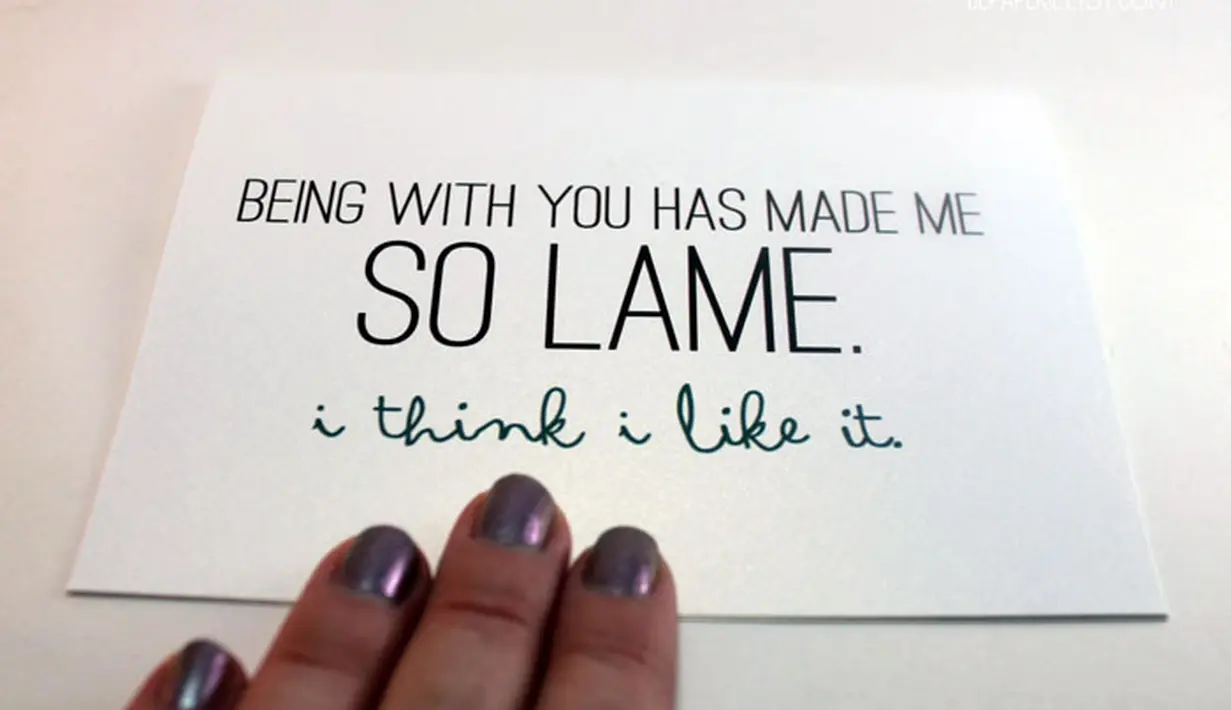 BEING WITH YOU HAS MADE ME
SO LAME.
i think i like it.